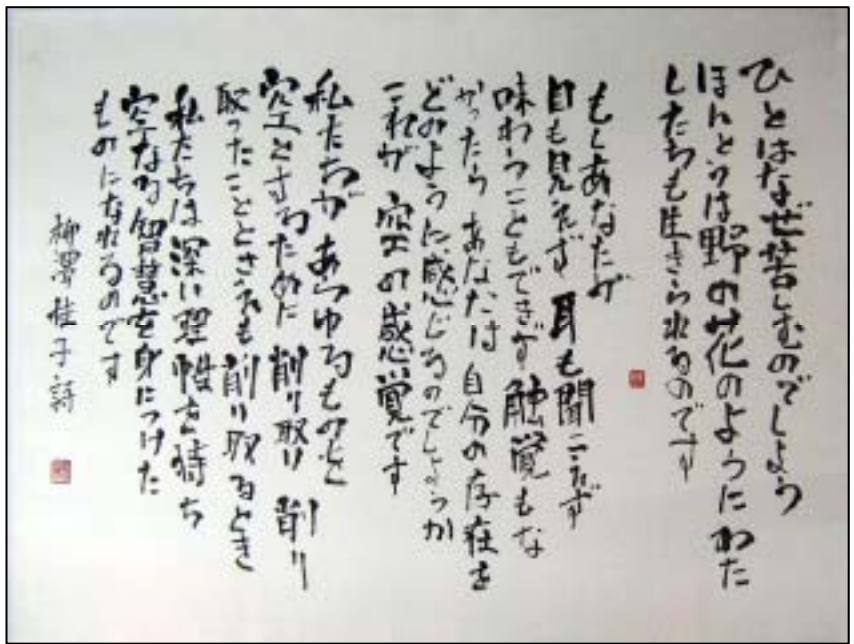 ひとはなぜ苦しむのでしょう
ほんとうは野の花のようにわた
したちも生きられるのです
もしあなたが
目も見えず 耳も聞こえず
味わうこともできず 触覚もな
かったら あなたは 自分の存在を
どのように 感じるのでしょうか
これが 空の感覚です
私たちが あらゆるものを
空とするために 削り取り 削り
取ったことさえも 削り取るとき
私たちは 深い理性を持ち
空なる智慧を身につけた
ものになれるのです
柳澤桂子 詩